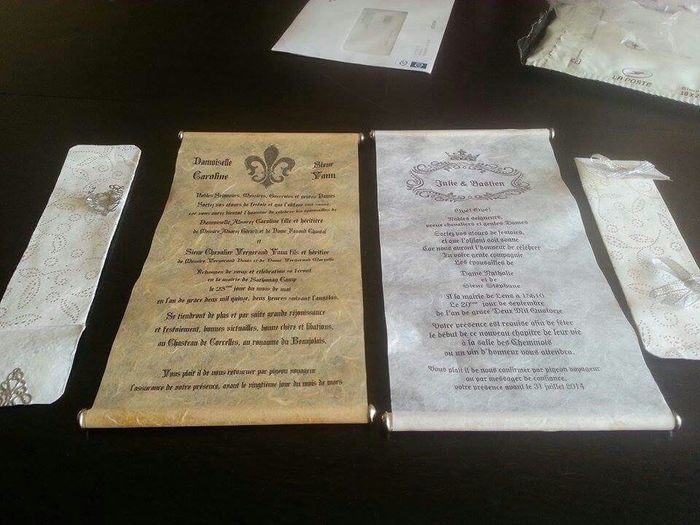 LA POSTE
Damoiselle
Caroline
Sieur
Yann
Nobles Seigneurs, Messires, Guerriers et gentes Dames
Sortez vos atours de festoie et que l'olifant soit sonné,
car nous aurez bientôt l'honneur de célébrer les épousailles de
Damoiselle Caroline fille et héritière
de Messire
et
Sieur Chevalier Yann fils et héritier
de Messire et de Dame
en la mairie de Camp
le 23ème jour du mois de mai
en l'an de grâce deux mil quinze, deux heures suivant l'angélus.
Se tiendront de plus et par suite grande réjouissance
et festoiement, bonnes victuailles, bonne chère et libations,
au Chasteau de Corcelles, au royaume du Beaujolais.
Vous plait il de nous retourner par pigeon voyageur
l'assurance de votre présence, avant le vingtième jour du mois de mars
Julie & Bastien
Oyez! Oyez!
Nobles seigneurs,
preux chevaliers et gentes Dames
Sortez vos atours de festoies,
et que l'olifant soit sonné
Car nous aurons l'honneur de célébrer
En votre gente compagnie
Les épousailles de
Dame Nathalie
et de
Sieur Stéphane
A la mairie de Lens à 15h30
Le 20ème jour de septembre
de l'an de grace Deux Mil Quatorze
Votre présence est requise afin de fêter
le début de ce nouveau chapitre de leur vie
à la salle des Cheminots
ou un vin d'honneur vous attendra.
Vous plait il de nous confirmer par pigeon voyageur
ou par messager de confiance,
votre présence avant le 31 juillet 2014